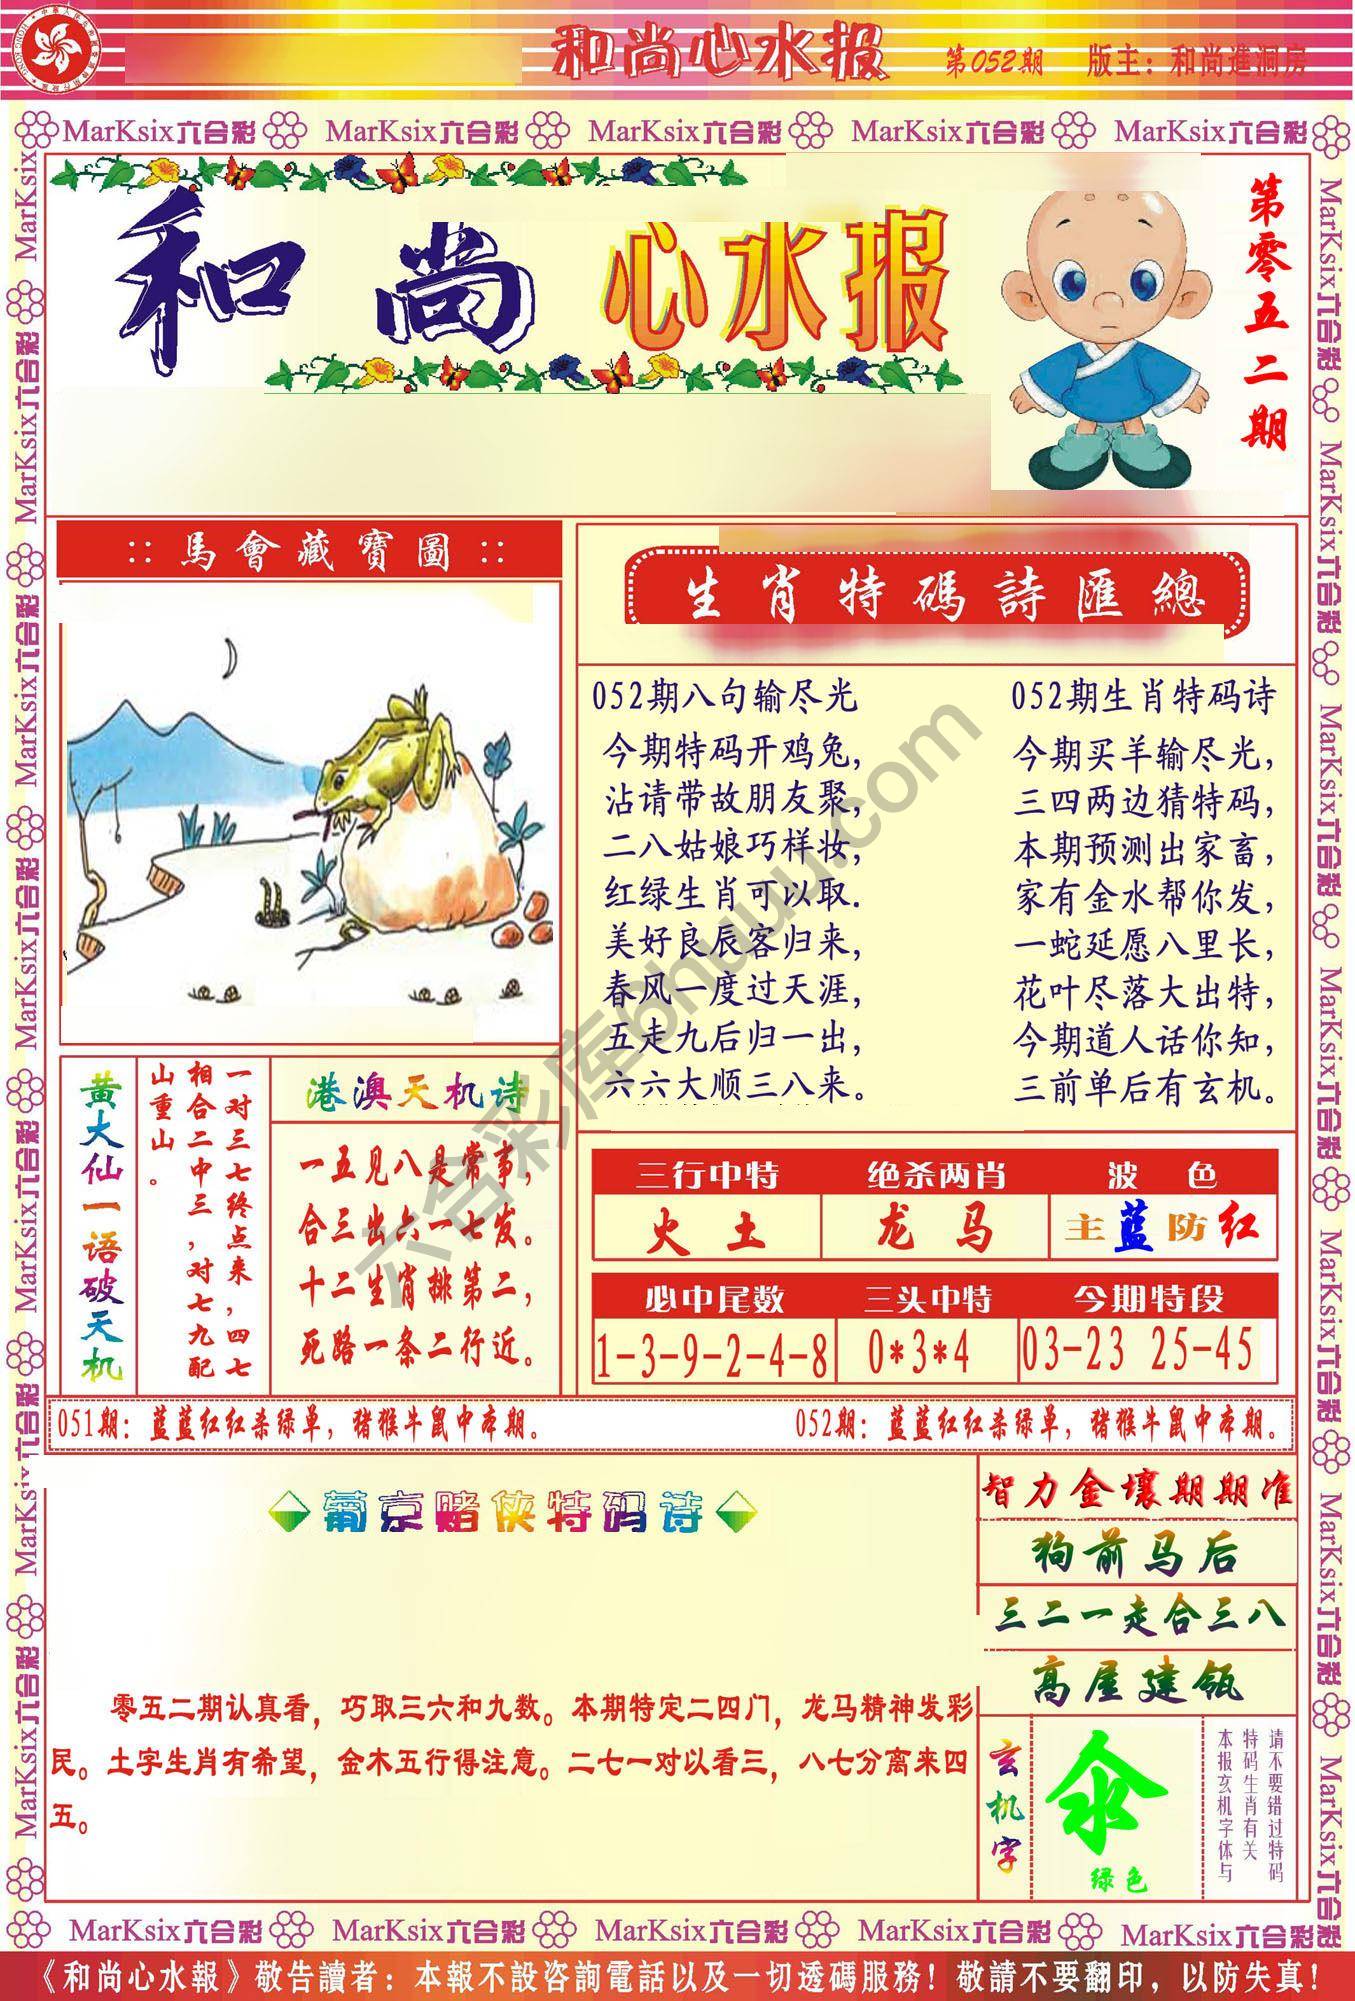 和尚心水报 第052期 版主：和尚進洞房
MarKsix六合彩 MarKsix六合彩 MarKsix六合彩 MarKsix六合彩 MarKsix六合彩
和尚心水报
第零五二期
:: 馬會藏寶圖 ::
生肖特碼詩匯總
052期八句输尽光
今期特码开鸡兔，
沾请带故朋友聚，
二八姑娘巧样妆，
红绿生肖可以取.
美好良辰客归来，
春风一度过天涯，
五走九后归一出，
六六大顺三八来。
052期生肖特码诗
今期买羊输尽光，
三四两边猜特码，
本期预测出家畜，
家有金水帮你发，
一蛇延愿八里长，
花叶尽落大出特，
今期道人话你知，
三前单后有玄机。
六合彩库6huuu.com
黄大仙一语破天机
一对三七终点来，四七
相合二中三，对七九配
山重山。
港澳天机诗
一五见八是常事，
合三出六一七发。
十二生肖排第二，
死路一条二行近。
三行中特 绝杀两肖 波 色
火 土 龙 马 主蓝防红
必中尾数 三头中特 今期特段
1-3-9-2-4-8 0*3*4 03-23 25-45
051期：蓝蓝红红杀绿单，猪猴牛鼠中本期。
052期：蓝蓝红红杀绿单，猪猴牛鼠中本期。
葡京赌侠特码诗
零五二期认真看，巧取三六和九数。本期特定二四门，龙马精神发彩
民。土字生肖有希望，金木五行得注意。二七一对以看三，八七分离来四
五。
智力金壤期期准
狗前马后
三二一走合三八
高屋建瓴
玄机字
氽
绿色
请不要错过特码
特码生肖有关
本报玄机字体与
MarKsix六合彩 MarKsix六合彩 MarKsix六合彩 MarKsix六合彩 MarKsix六合彩
《和尚心水報》敬告讀者：本報不設咨詢電話以及一切透碼服務！敬請不要翻印，以防失真！